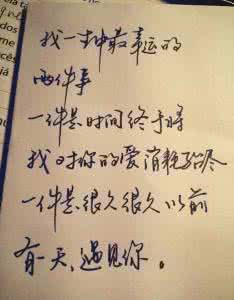 我一生中最幸运的
两件事
一件是时间终于将
我对你的爱消耗殆尽
一件是很久很久以前
有一天,遇见你。